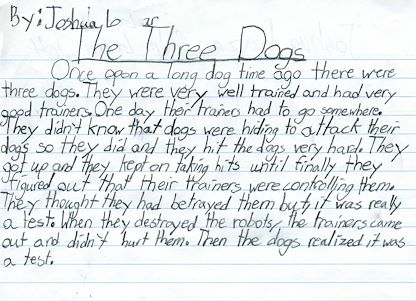 By: Joshua b gr
The Three Dogs
Once upon a long dog time ago there were
three dogs. They were very well trained and had very
good trainers. One day their trainers had to go somewhere.
They didn't know that dogs were hiding to attack their
dogs so they did and they hit the dogs very hard. They
got up and they kept on taking hits until finally they
figured out that their trainers were controlling them.
They thought they had betrayed them but, it was really
a test. When they destroyed the robots, the trainers came
out and didn't hurt them. Then the dogs realized it was
a test.